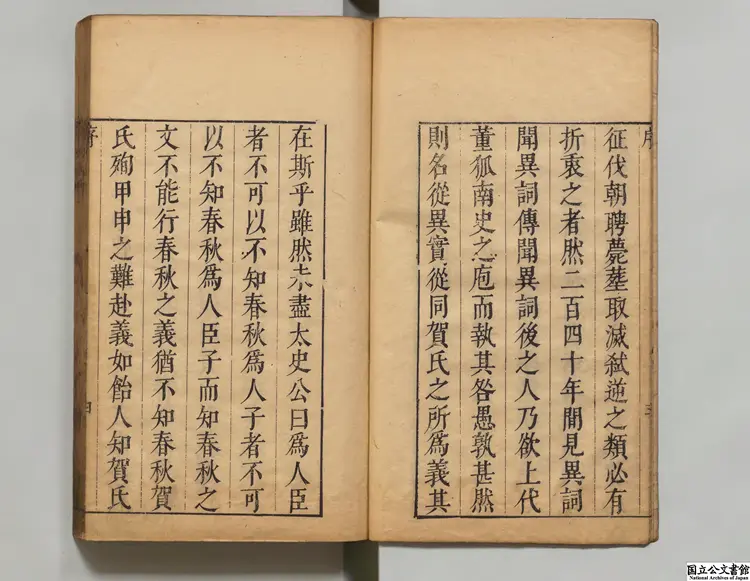 序
三
征伐朝聘薨塟取滅弑逆之類必有
折衷之者然二百四十年間見異詞
聞異詞傳聞異詞後之人乃欲上代
董狐南史之庖而執其咎愚孰甚然
則名從異實從同賀氏之所爲義其
在斯乎雖然未盡太史公曰爲人臣
者不可以不知春秋爲人子者不可
以不知春秋爲人臣子而知春秋之
文不能行春秋之義猶不知春秋賀
氏殉甲申之難赴義如飴人知賀氏
序
四
国立公文書館
National Archives of Japan